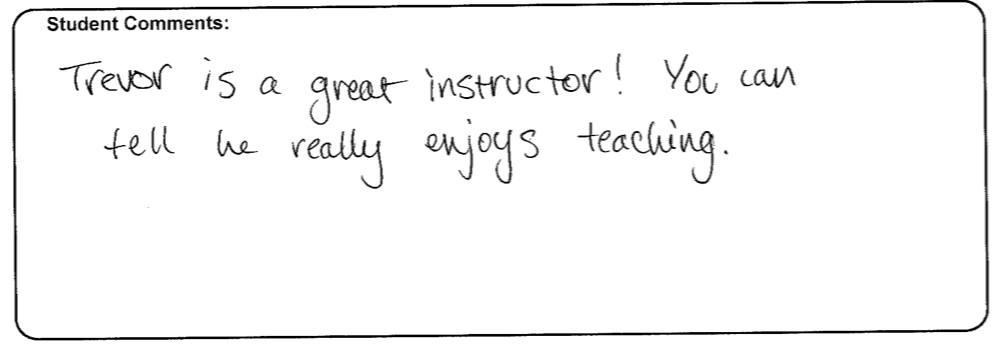 Student Comments:
Trevor is a great instructor! You can
tell he really enjoys teaching.